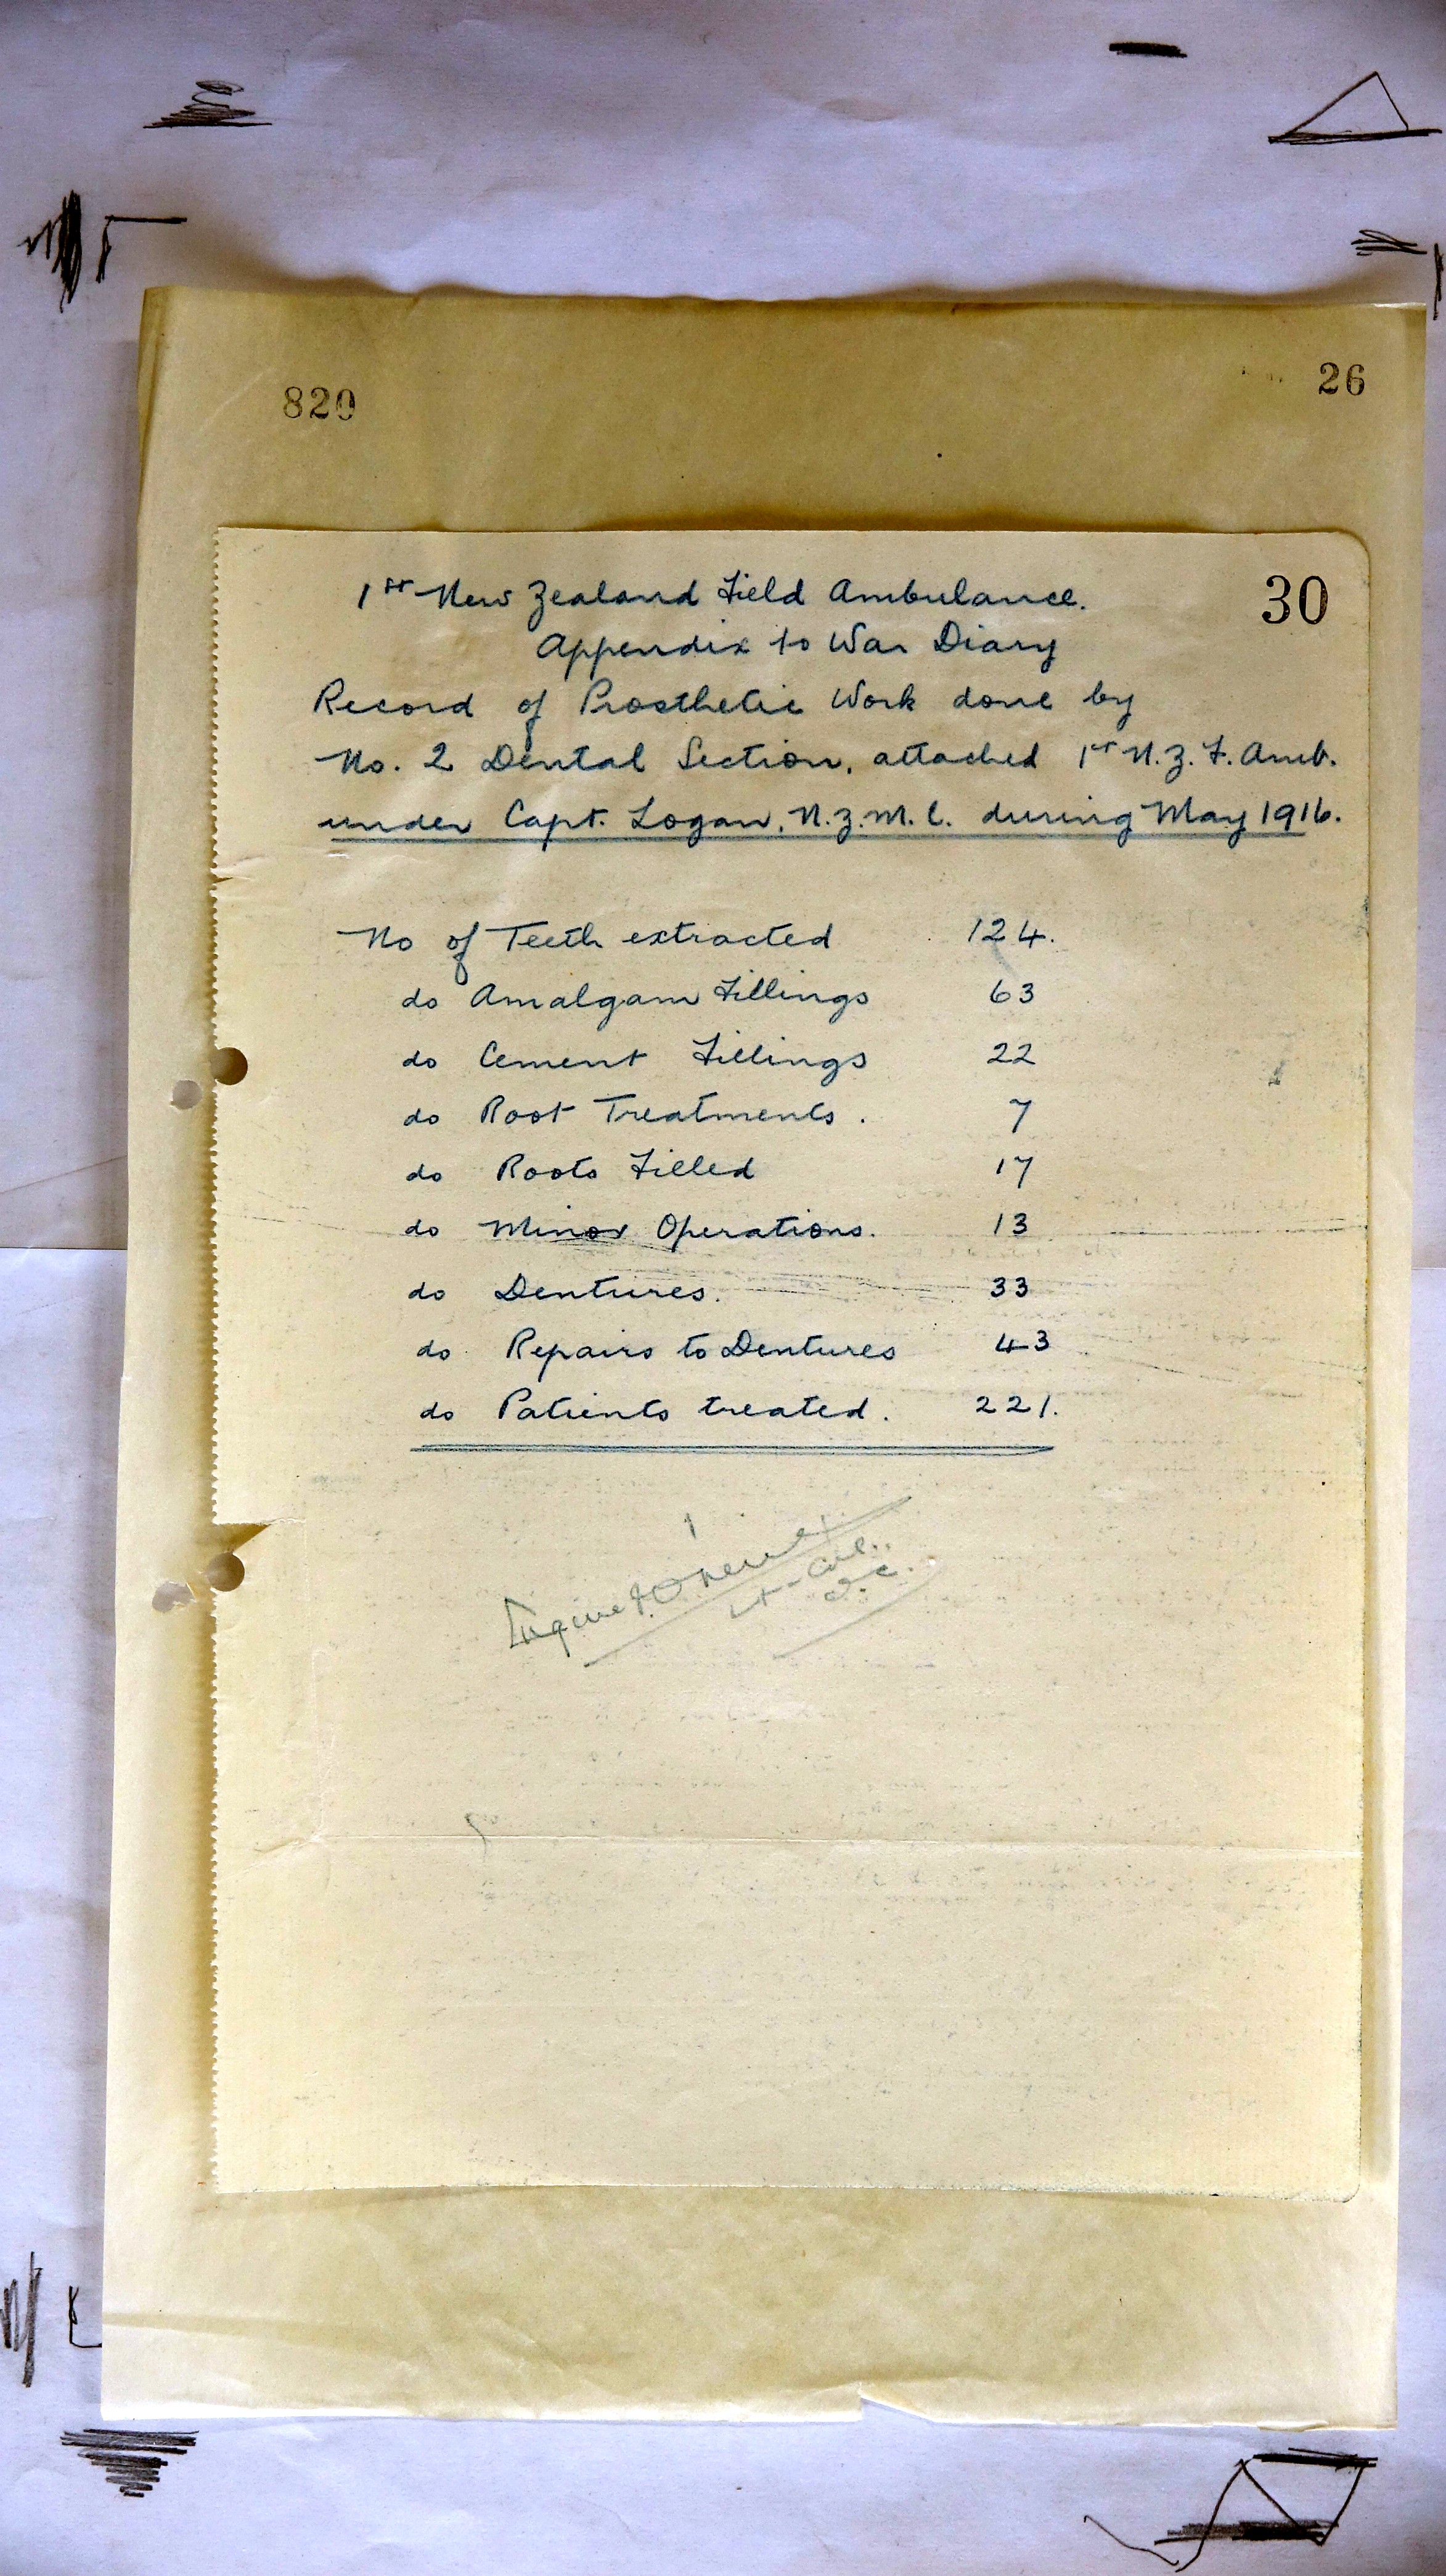 820
26
30
1st New Zealand Field Ambulance.
Appendix to War Diary
Record of Prosthetic Work done by
No. 2 Dental Section, attached 1st N.Z.F. Amb.
under Capt. Logan, N.Z.M.C. during May 1916.
No of Teeth extracted 124.
do Amalgam Fillings 63
do Cement Fillings 22
do Root Treatments. 7
do Roots Filled 17
do Minor Operations. 13
do Dentures. 33
do Repairs to Dentures 43
do Patients treated. 221.
Lt-Col.